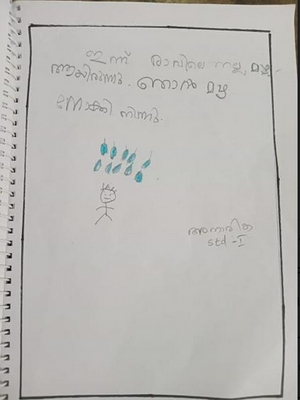 ഇന്ന് രാവിലെ നല്ല മഴ
ആയിരുന്നു. ഞാൻ മഴ
നോക്കി നിന്നു.
std - I